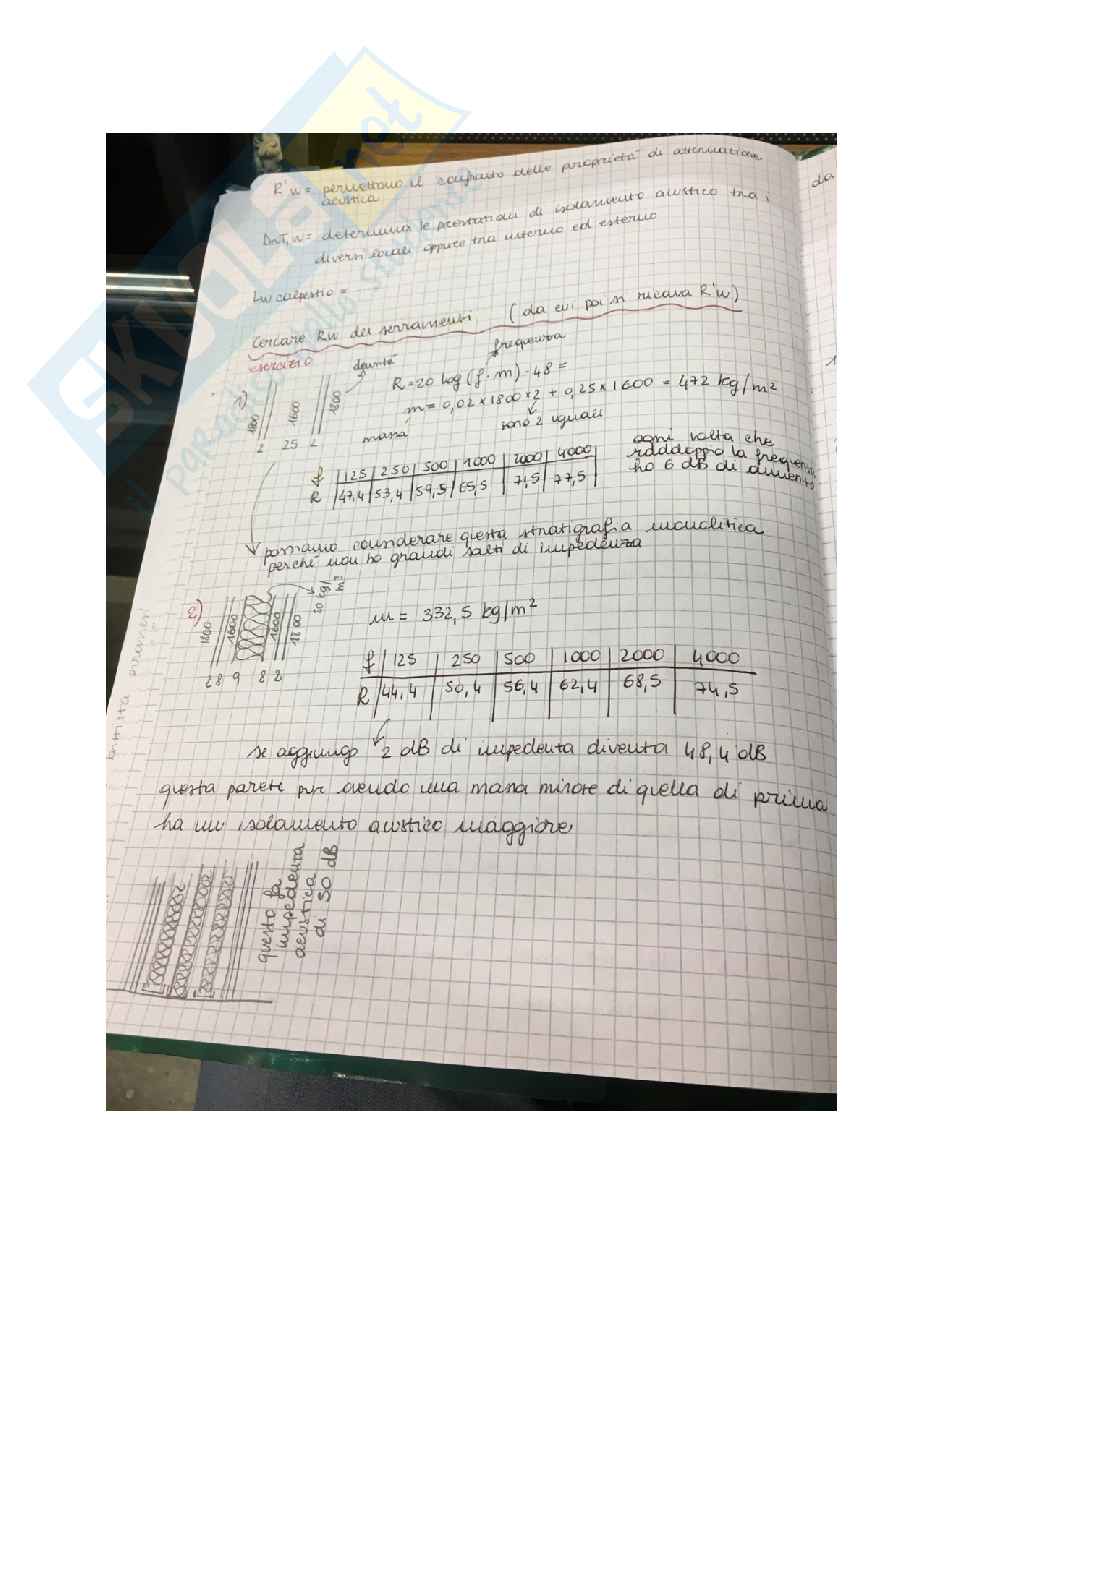 SKUOLA.not
il paradiso dello studente
R'w = permettono il confronto delle proprietà di attenuazione
acustica
DnT,w = determina le prestazioni di isolamento acustico tra
diversi locali oppure tra interno ed esterno
Lw calpestio =
Cercare Rw dei serramenti (da cui poi si ricava R'w)
esercizio
1)
densità
frequenza
R = 20 log (f · m) - 48 =
1800 1600 1800
m = 0,02 x 1800 x 2 + 0,25 x 1600 = 472 kg/m²
massa
sono 2 uguali
2 25 2
f 125 250 500 1000 2000 4000
R 47,4 53,4 59,5 65,5 71,5 77,5
ogni volta che
raddoppio la frequenza
ho 6 dB di aumento
possiamo considerare questa stratigrafia monolitica
perché non ho grandi salti di impedenza
2)
50 kg/m³
1800 1600 1600 1800
2 8 9 8 2
m = 332,5 kg/m²
f 125 250 500 1000 2000 4000
R 44,4 50,4 56,4 62,4 68,5 74,5
se aggiungo 2 dB di impedenza diventa 48,4 dB
questa parete pur avendo una massa minore di quella di prima
ha un isolamento acustico maggiore.
questo fa
impedenza
acustica
di 50 dB
da